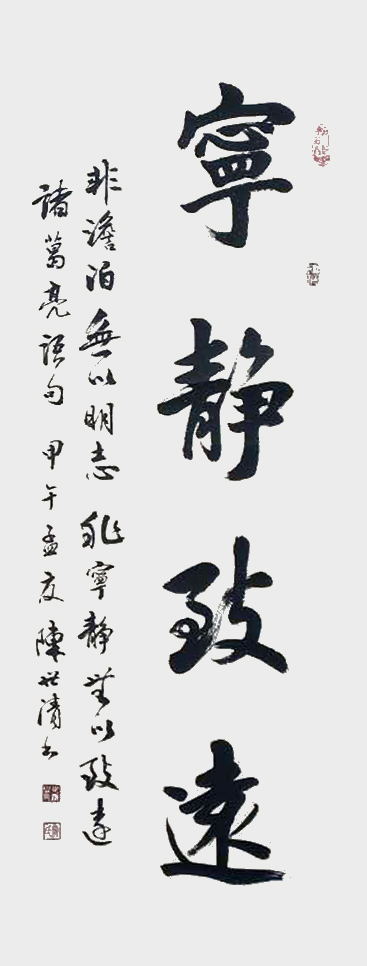 寧靜致遠
非澹泊無以明志非寧靜無以致遠
諸葛亮語句甲午孟夏陳世清書